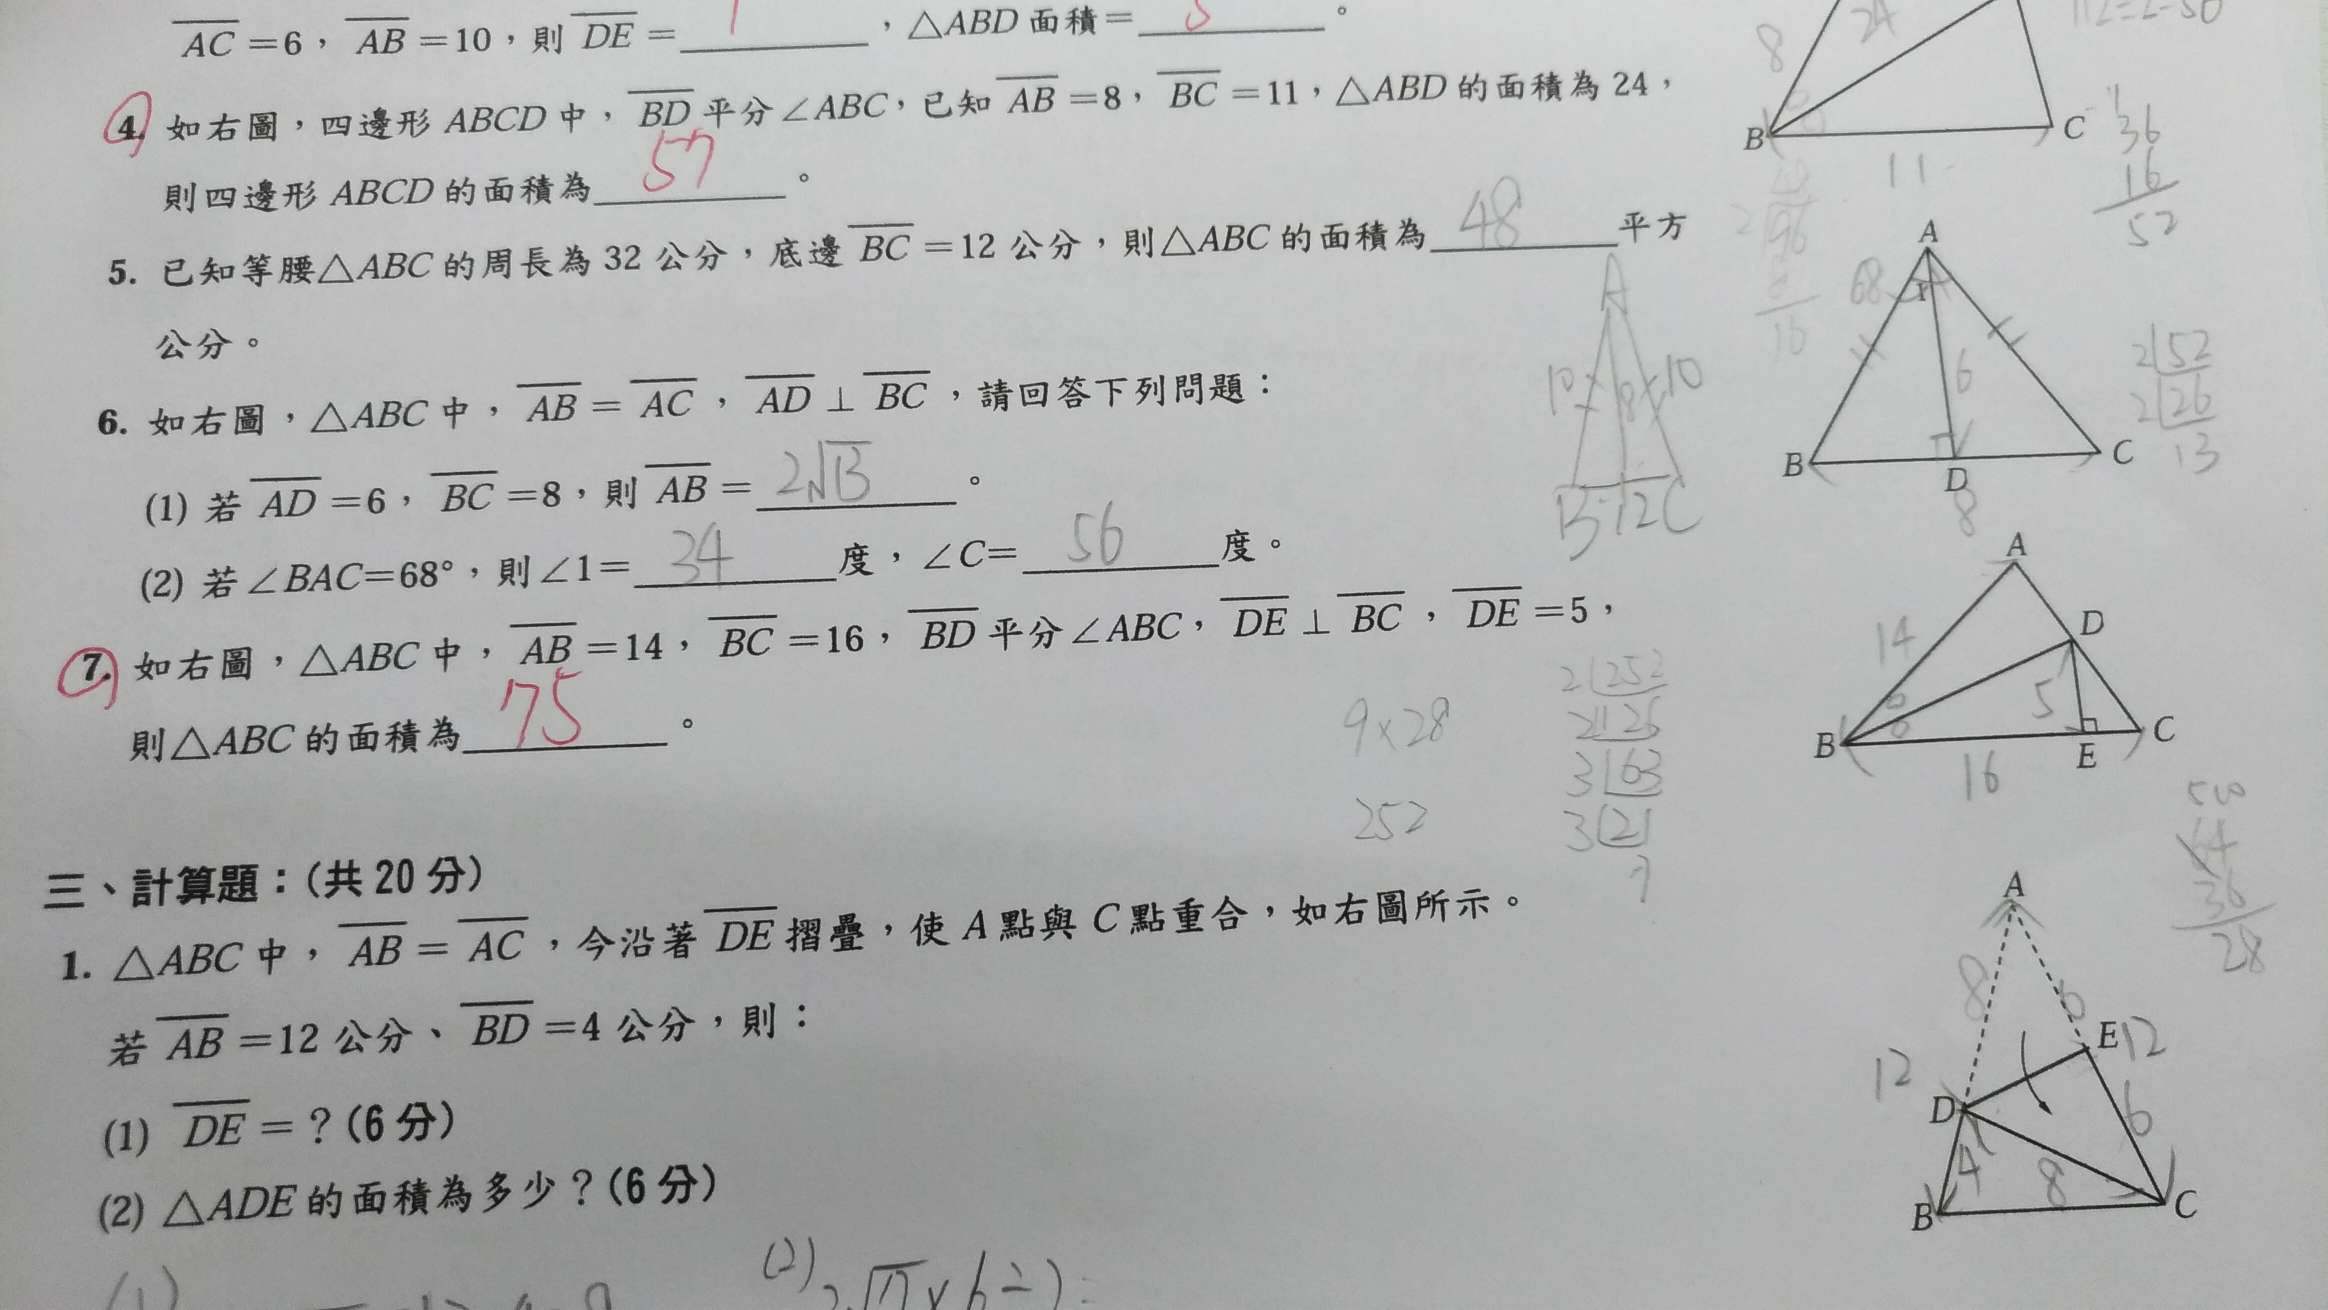 AC=6，AB=10，則 DE=1，△ABD 面積=。
4. 如右圖，四邊形 ABCD 中，BD 平分∠ABC，已知 AB=8，BC=11，△ABD 的面積為 24，
則四邊形 ABCD 的面積為 57。
5. 已知等腰△ABC 的周長為 32 公分，底邊 BC=12 公分，則△ABC 的面積為 48 平方
公分。
6. 如右圖，△ABC 中，AB=AC，AD⊥BC，請回答下列問題：
(1) 若 AD=6，BC=8，則 AB=2√13。
(2) 若∠BAC=68°，則∠1=34度，∠C=56度。
7. 如右圖，△ABC 中，AB=14，BC=16，BD 平分∠ABC，DE⊥BC，DE=5，
則△ABC 的面積為 75。
三、計算題：(共 20 分)
1. △ABC 中，AB=AC，今沿著 DE 摺疊，使 A 點與 C 點重合，如右圖所示。
若 AB=12 公分、BD=4 公分，則：
(1) DE=？(6 分)
(2) △ADE 的面積為多少？(6 分)
(1)
(2)
8
24
B
C
11
36
16
52
A
68
1
6
B
D
C
8
2 52
2 26
13
A
10 8 10
B 12 C
A
14
D
5
B
E
C
16
9×28
252
2 252
2 126
3 63
3 21
7
64
36
28
A
8
6
E 12
12
D
6
4
8
B
C